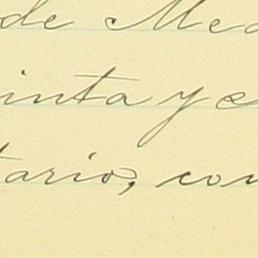 de Me
inta y
tario, con